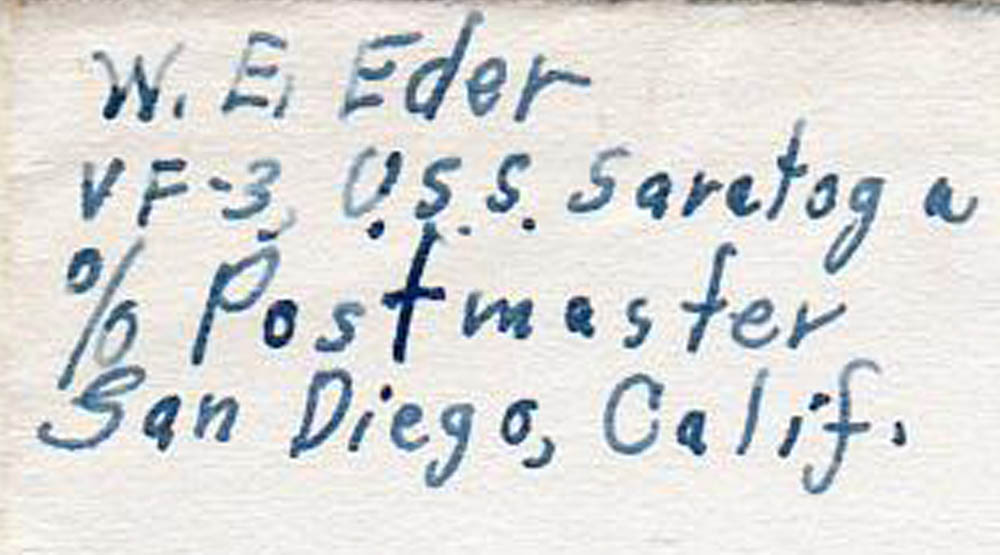 W. E. Eder
VF-3, U.S.S. Saratoga
% Postmaster
San Diego, Calif.